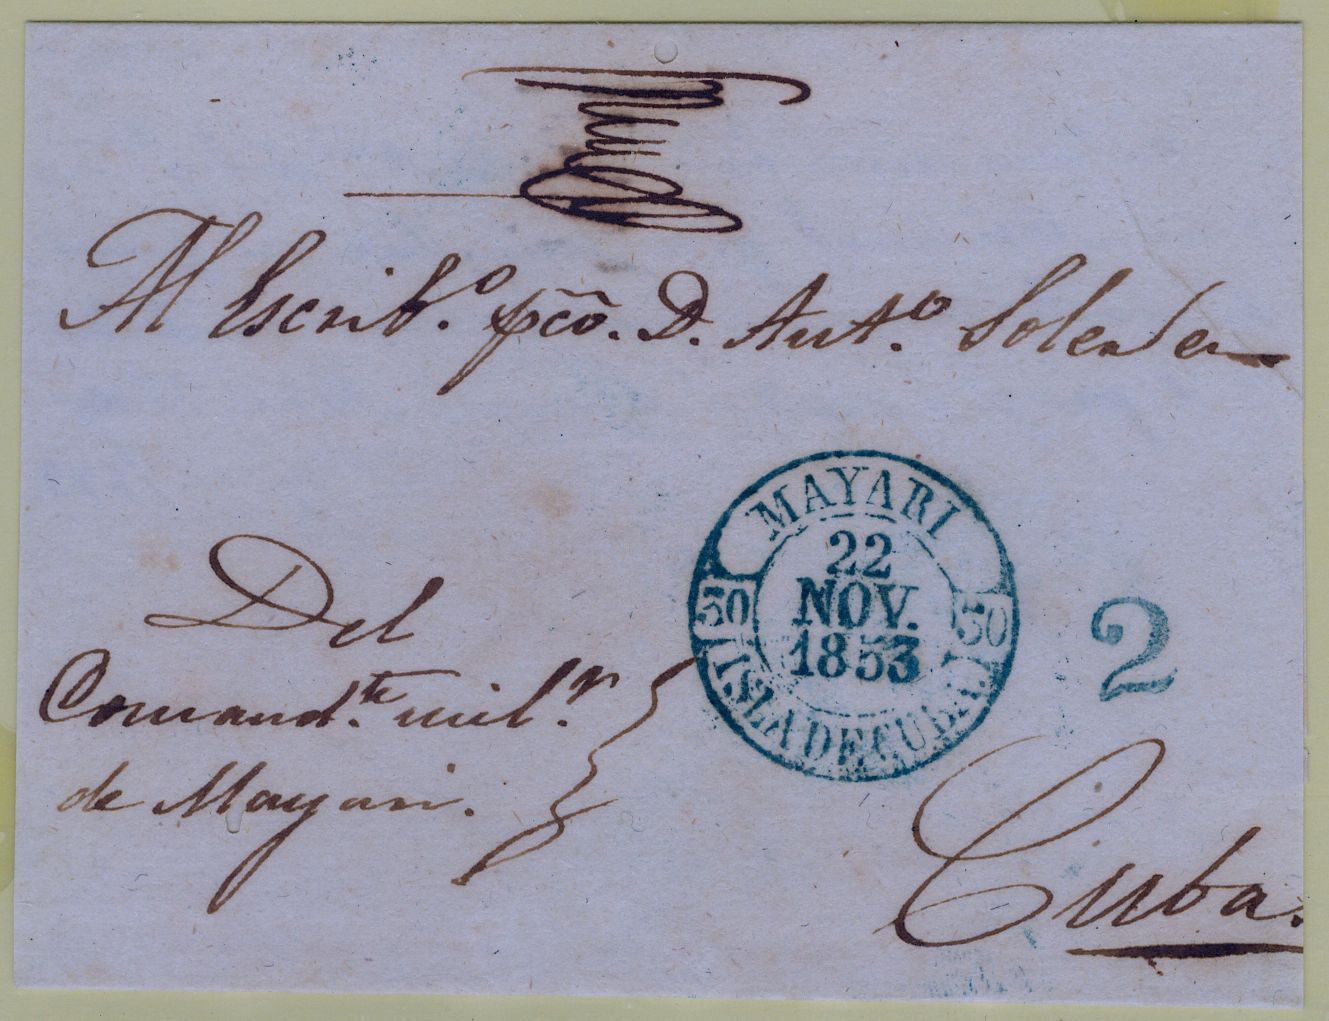 Al Escrib.º pcô. D. Ant.º Soler
MAYARI
22
NOV.
1853
30
30
ISLA DE CUBA
2
Del
Comand.te mil.r
de Mayari.
Cuba.